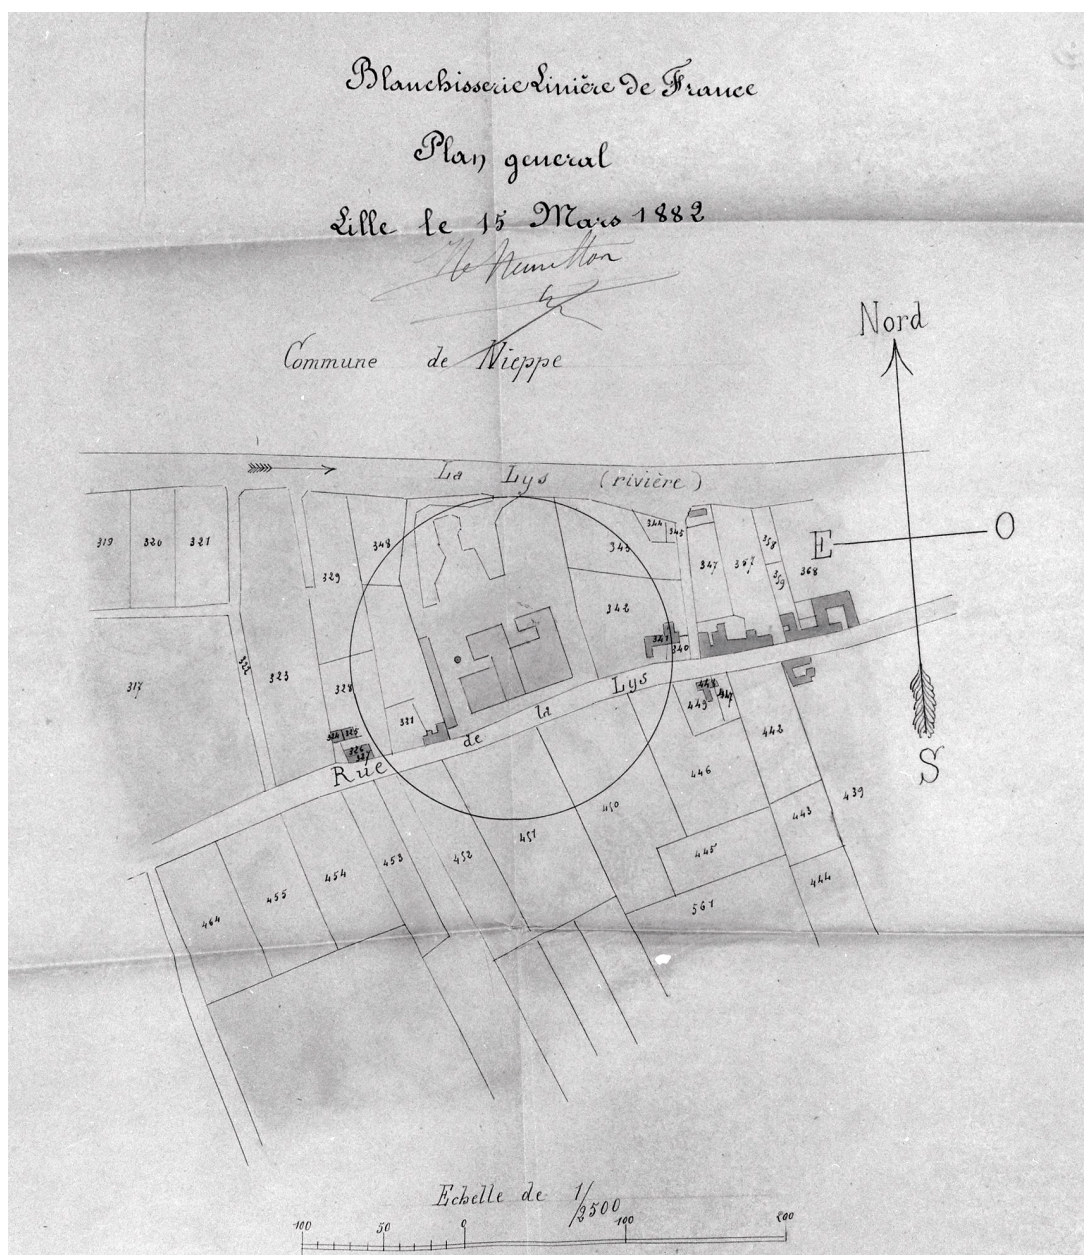 Blanchisserie Linière de France
Plan general
Lille le 15 Mars 1882
Commune de Nieppe
Nord
E O
S
La Lys (rivière)
319 320 321
348
329
344 345
343
347
367
358
359
368
342
341
340
322
323
317
328
321
324 325
326
327
Rue de la Lys
448
449
447
442
446
439
443
450
451
445
444
452
453
454
455
464
561
Echelle de 1/2500
100 50 0 100 200